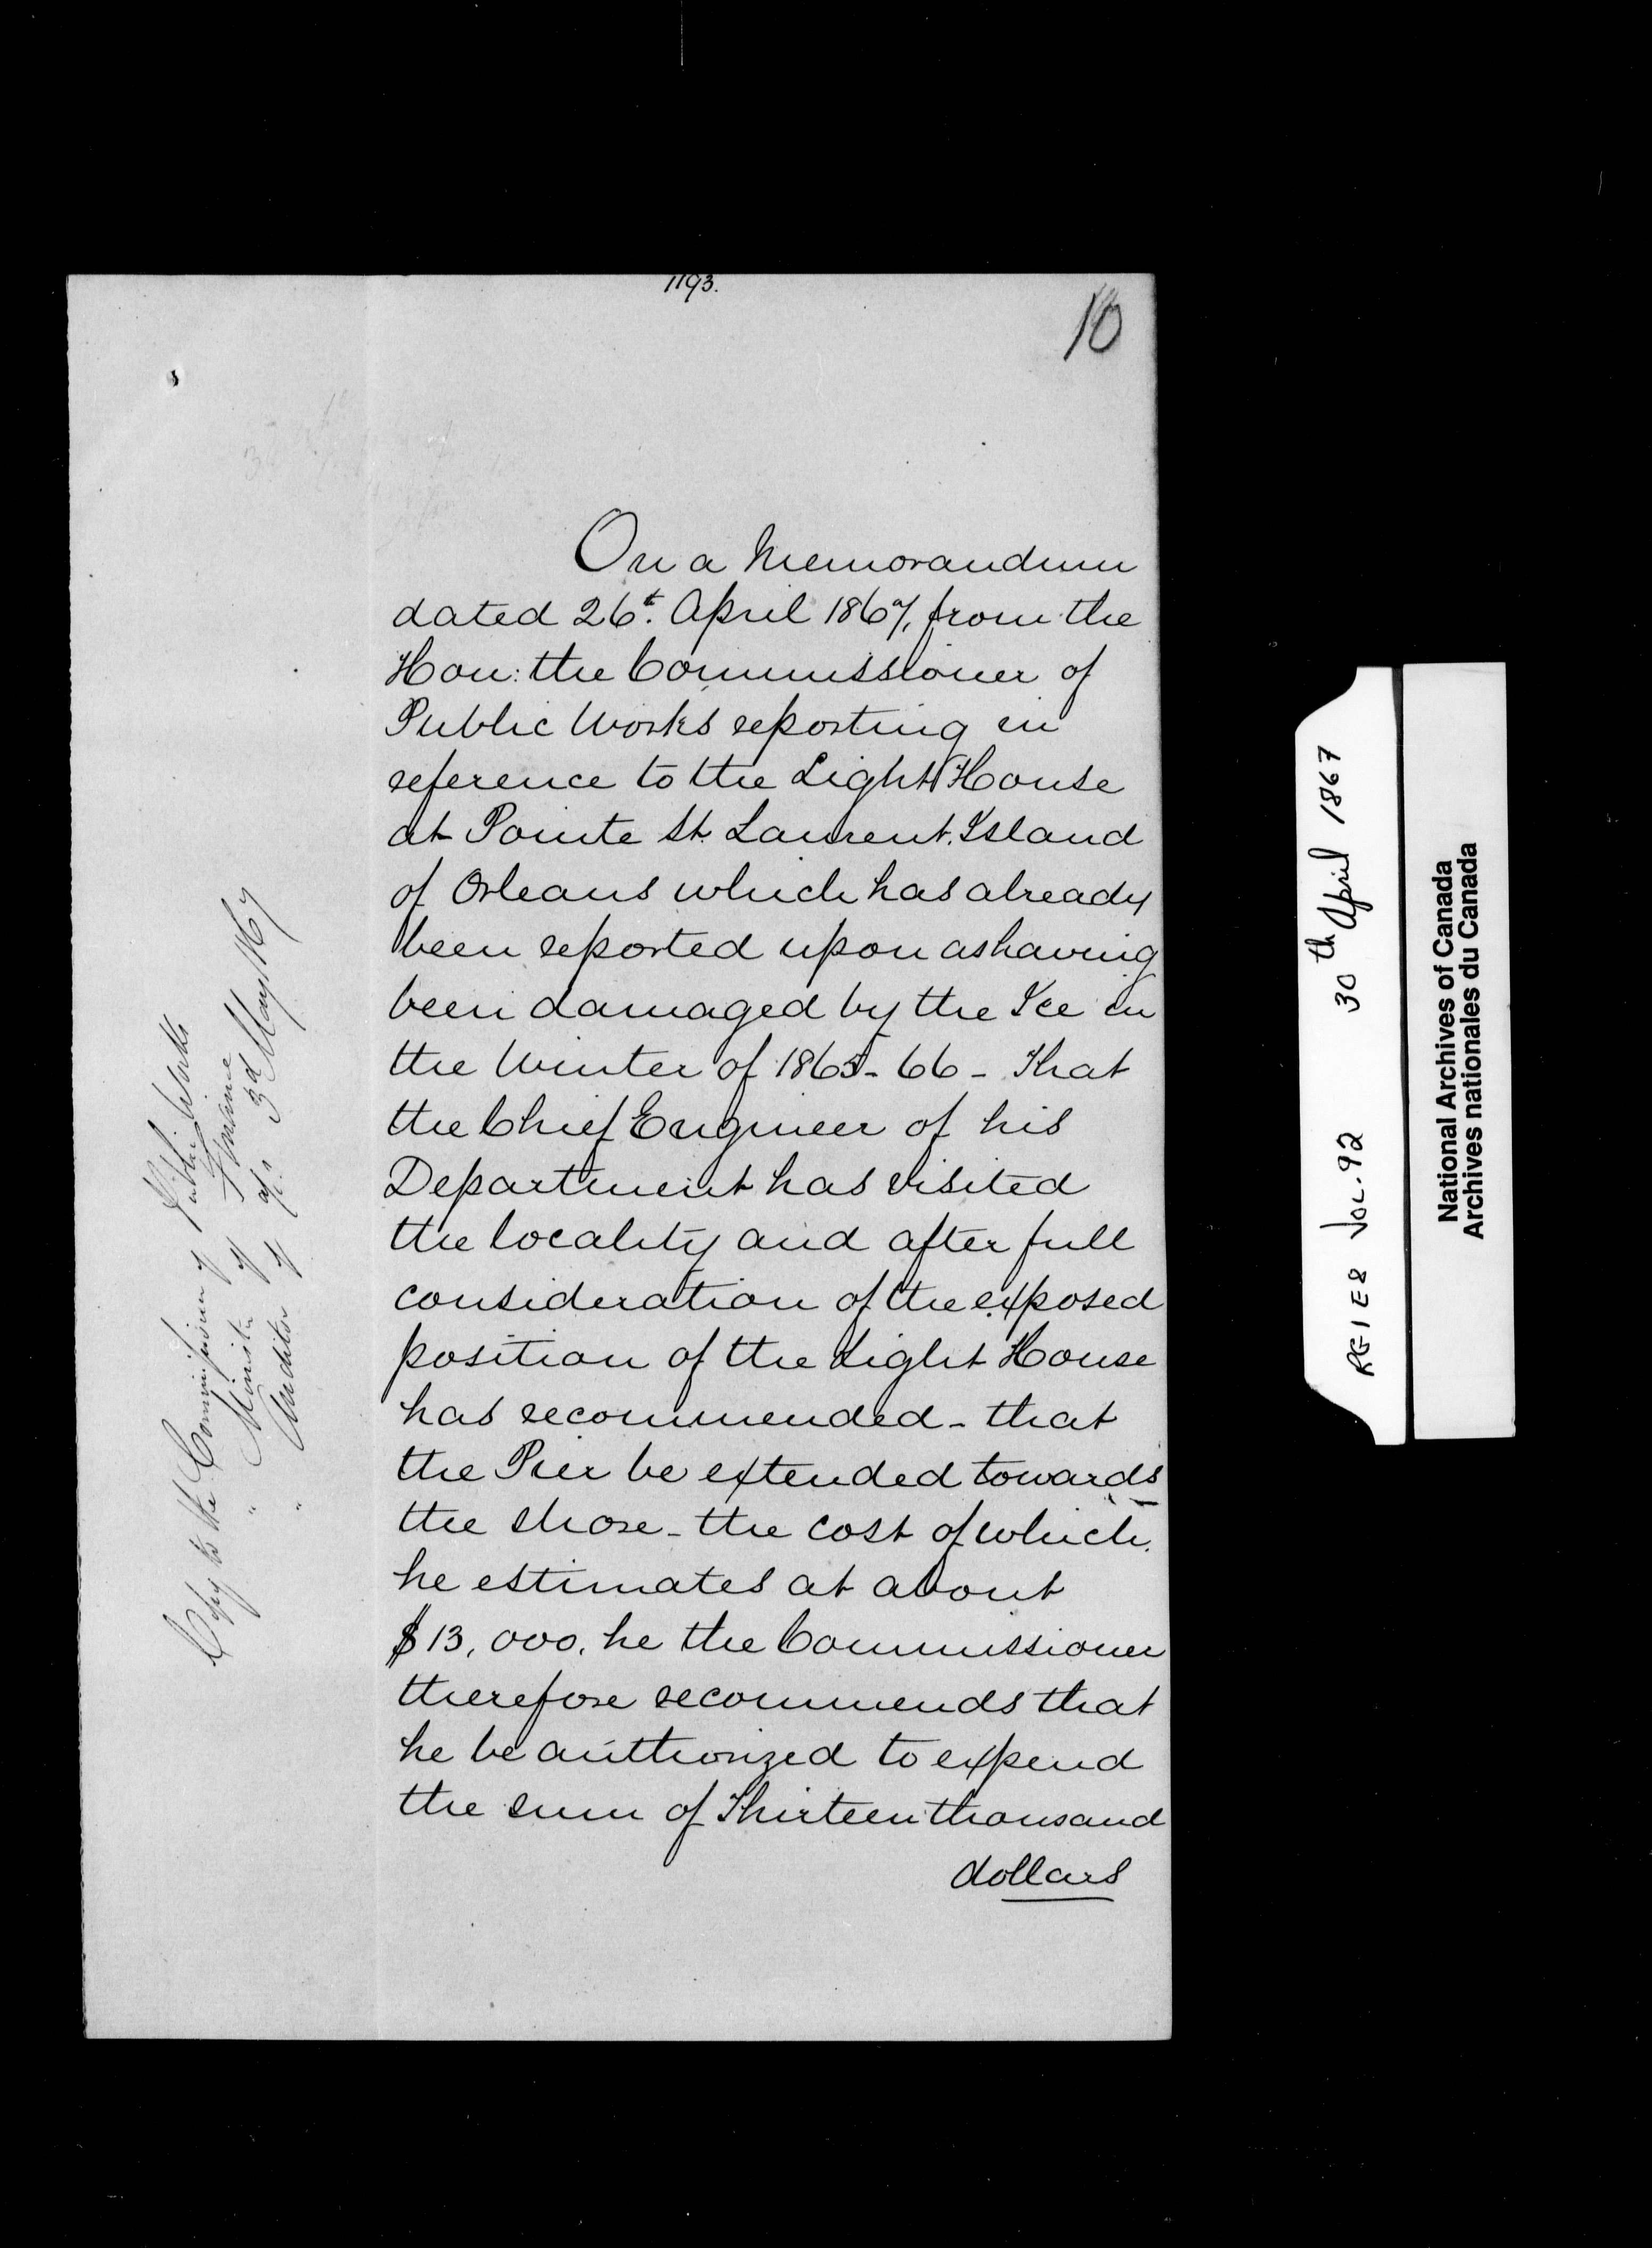 1193.
10
On a Memorandum
dated 26t. April 1867, from the
Hon: the Commissioner of
Public Works reporting in
reference to the Light House
at Pointe St. Laurent. Island
of Orleans which has already
been reported upon as having
been damaged by the Ice in
the Winter of 1865-66 - That
the Chief Engineer of his
Department has visited
the locality and after full
consideration of the exposed
position of the Light House
has recommended - that
the Pier be extended towards
the shore - the cost of which
he estimates at about
$13,000. he the Commissioner
therefore recommends that
he be authorized to expend
the sum of Thirteen thousand
dollars
Copy to the Commissioner of Public Works
" Minister of Finance
" Auditor of a/cs 3d May 1867
RG1E8 VOL. 92 30th April 1867
National Archives of Canada
Archives nationales du Canada